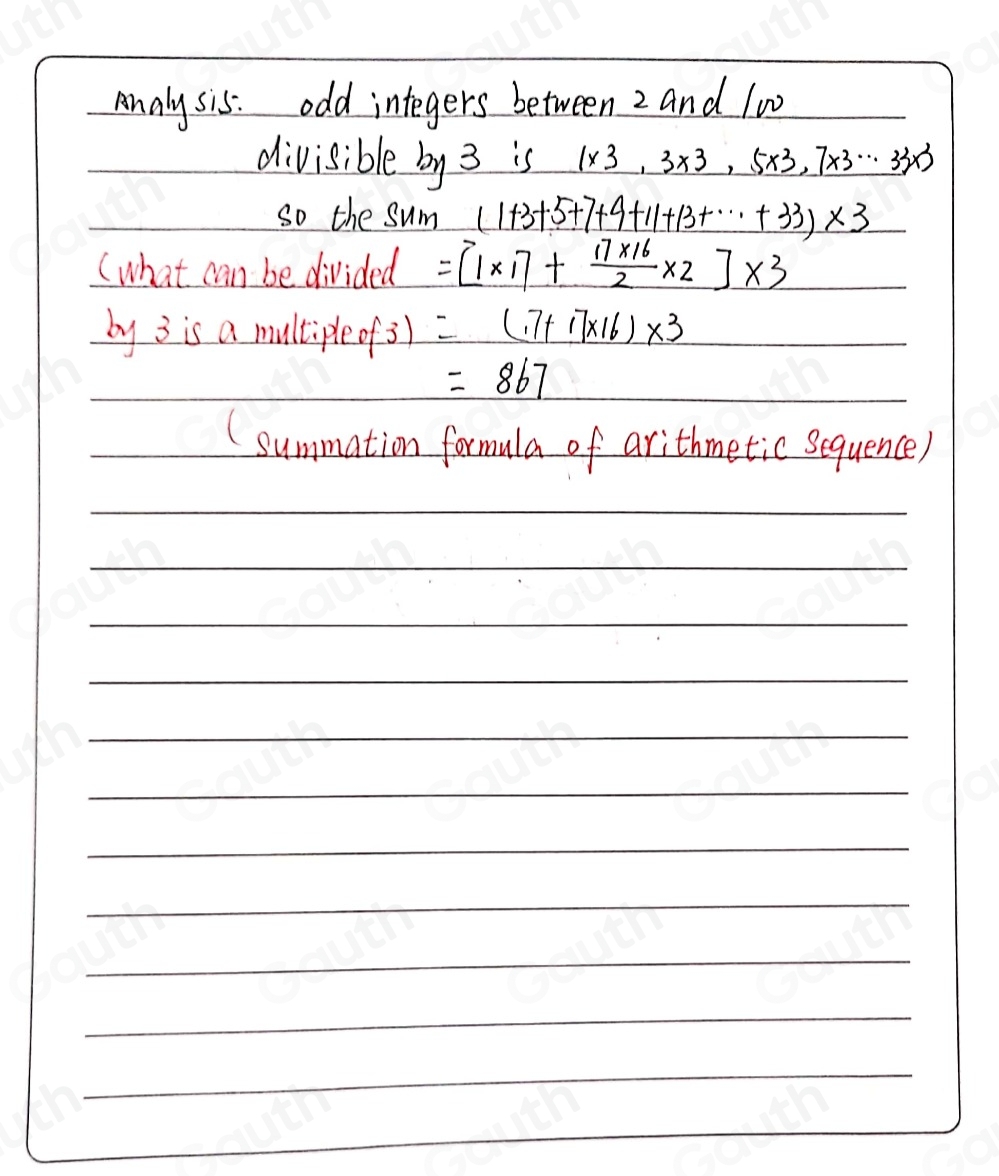 Analysis: odd integers between 2 and 100
divisible by 3 is 1×3, 3×3, 5×3, 7×3... 33×3
so the sum (1+3+5+7+9+11+13+...+33)×3
(what can be divided =[1×17+ 17×16/2 ×2]×3
by 3 is a multiple of 3) = (17+17×16)×3
= 867
(summation formula of arithmetic sequence)